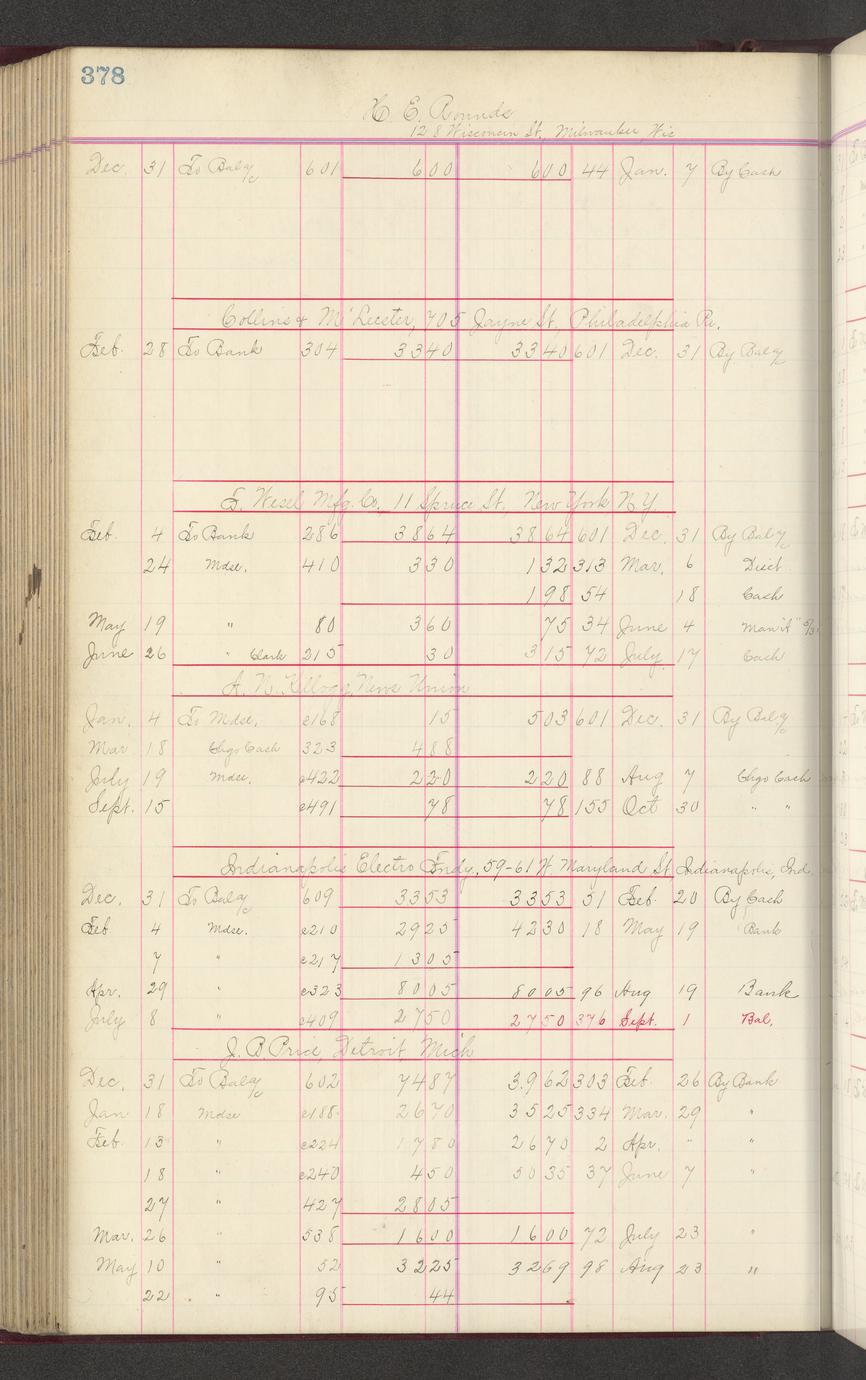 378
H. E. Rounds
128 Wisconsin St, Milwaukee Wis
Dec. 31 To Bal a/c 601 600 600 44 Jan. 7 By Cash
Collins & M'Leester, 705 Jayne St, Philadelphia Pa.
Feb. 28 To Bank 304 3340 3340 601 Dec. 31 By Bal a/c
F. Wesel Mfg. Co. 11 Spruce St, New York N.Y.
Feb. 4 To Bank 286 3864 3864 601 Dec. 31 By Bal a/c
24 Mdse. 410 330 132 313 Mar. 6 Disct
198 54 18 Cash
May 19 " 80 360 75 34 June 4
June 26 " Clark 215 30 315 72 July 17 Cash
A. N. Kellogg News Union
Jan. 4 To Mdse. e168 15 503 601 Dec. 31 By Bal a/c
Mar 18 Chgo Cash 323 488
July 19 Mdse. e422 220 220 88 Aug 7 Chgo Cash
Sept. 15 e491 78 78 155 Oct 30 " "
Indianapolis Electro Fndy. 59-61 W Maryland St, Indianapolis, Ind,
Dec. 31 To Bal a/c 609 3353 3353 51 Feb. 20 By Cash
Feb 4 Mdse. e210 2925 4230 18 May 19 Bank
7 " e217 1305
Apr. 29 " e323 8005 8005 96 Aug 19 Bank
July 8 " e409 2750 2750 376 Sept. 1 Bal.
J. B Price, Detroit Mich
Dec. 31 To Bal a/c 602 7487 3962 303 Feb. 26 By Bank
Jan 18 Mdse e188 2670 3525 334 Mar. 29 "
Feb. 13 " e224 1780 2670 2 Apr. " "
18 " e240 450 5035 37 June 7 "
27 " 427 2805
Mar. 26 " 538 1600 1600 72 July 23 "
May 10 " 52 3225 3269 98 Aug 23 "
22 " 95 44